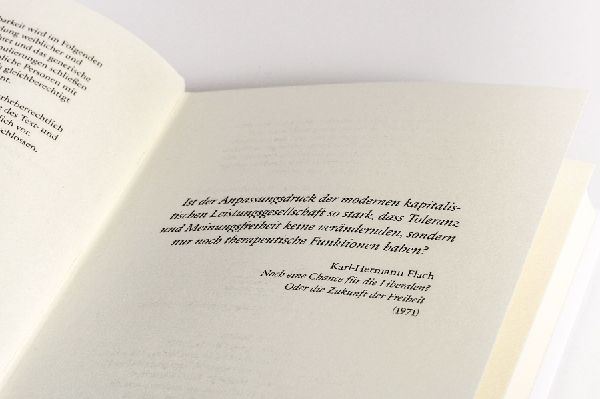 barkeit wird im Folgenden
dung weiblicher und
htet und das generische
nulierungen schließen
bliche Personen mit
h gleichberechtigt
nt.
rheberrechtlich
des Text- und
lich vor.
schlossen.
Ist der Anpassungsdruck der modernen kapitalis-
tischen Leistungsgesellschaft so stark, dass Toleranz
und Meinungsfreiheit keine verändernden, sondern
nur noch therapeutische Funktionen haben?
Karl-Hermann Flach
Noch eine Chance für die Liberalen?
Oder die Zukunft der Freiheit
(1971)